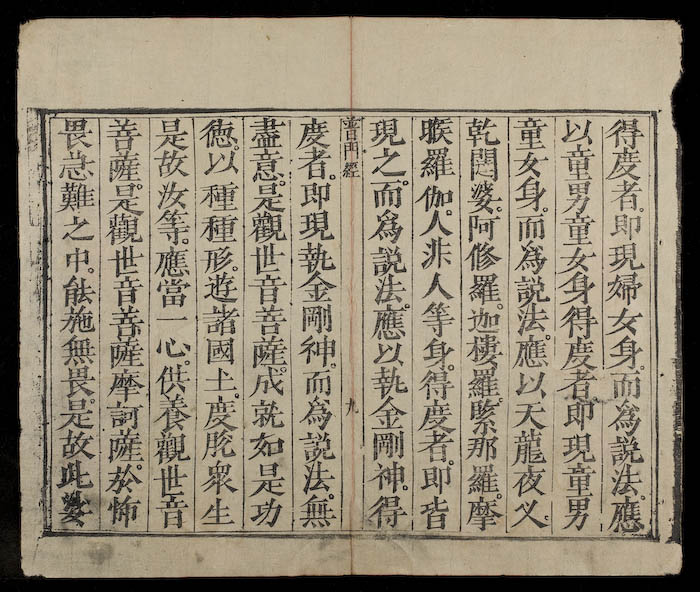 得度者。即現婦女身。而爲說法。應
以童男童女身得度者。即現童男
童女身。而爲說法。應以天龍夜叉
乾闥婆。阿修羅。迦樓羅緊那羅。摩
睺羅伽。人非人等身。得度者。即皆
現之。而爲說法。應以執金剛神。得
普門經
九
度者。即現執金剛神。而爲說法。無
盡意。是觀世音菩薩。成就如是功
德。以種種形。遊諸國土。度脫衆生
是故汝等。應當一心。供養觀世音
菩薩。是觀世音菩薩摩訶薩。於怖
畏急難之中。能施無畏。是故此娑